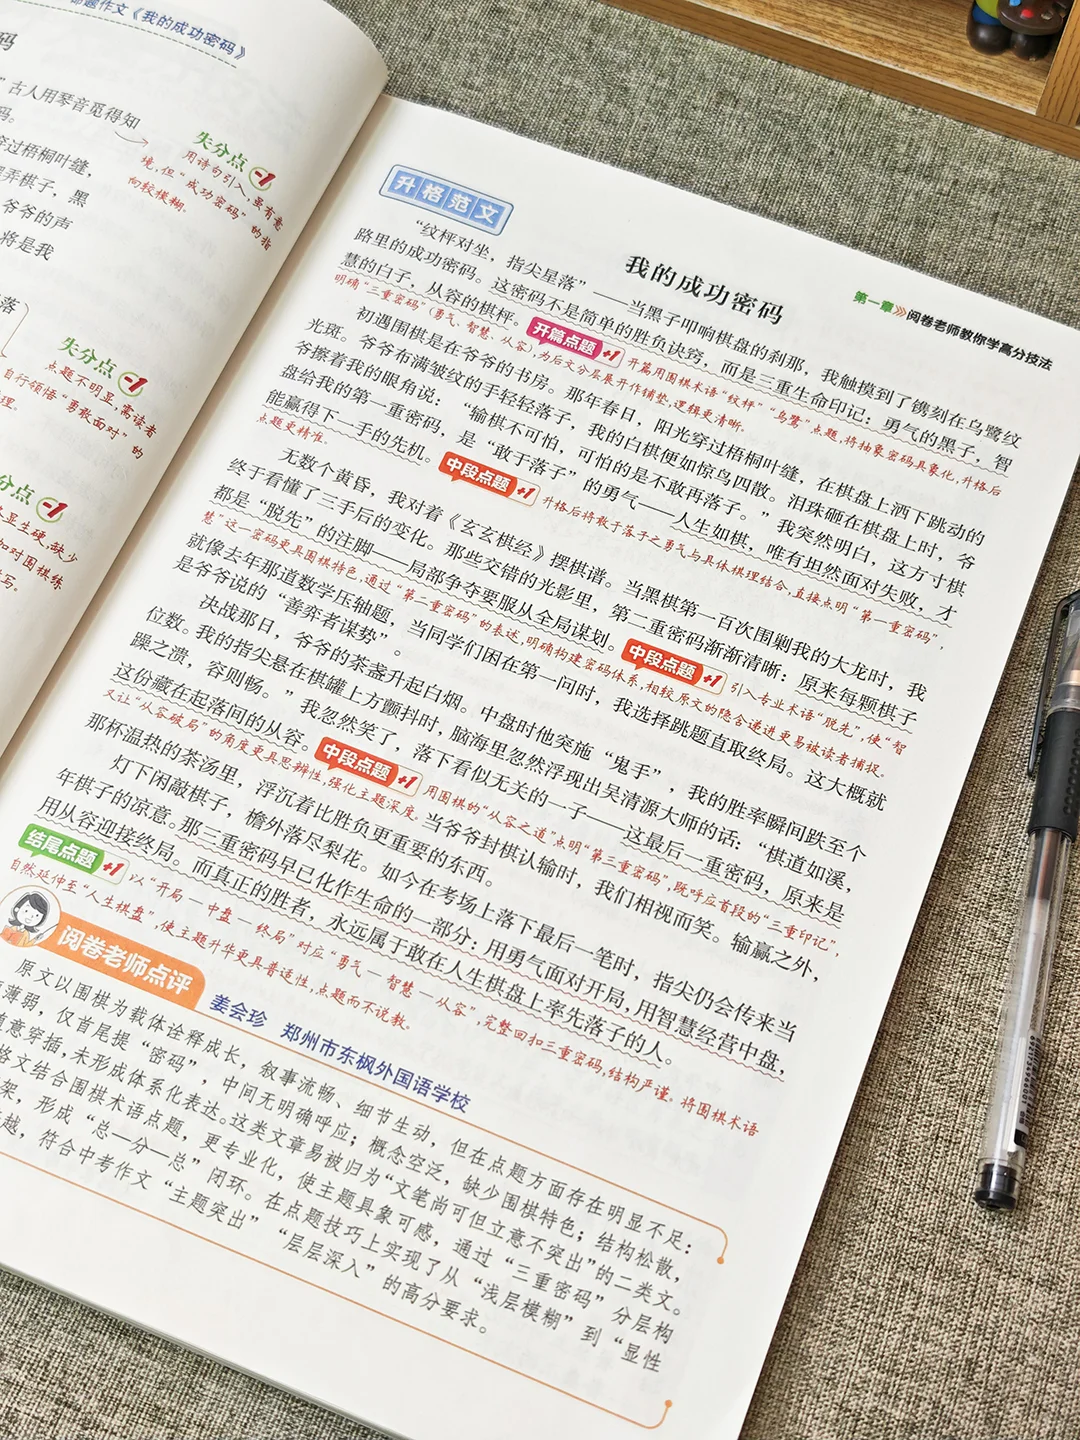 命题作文《我的成功密码》
码
”古人用琴音觅得知
码。
穿过梧桐叶缝，
弄棋子，黑
爷爷的声
将是我
落
失分点 -1
用诗句引入，虽有意
境，但“成功密码”的指
向较模糊。
失分点 -1
点题不明显，需读者
自行领悟“勇敢面对”的
理。
分点 -1
显生硬，缺少
如对围棋练
写。
第一章 阅卷老师教你学高分技法
升格范文
我的成功密码
“纹枰对坐，指尖星落”——当黑子叩响棋盘的刹那，我触摸到了镌刻在乌鹭纹
路里的成功密码。这密码不是简单的胜负诀窍，而是三重生命印记：勇气的黑子，智
慧的白子，从容的棋枰。
开篇点题 +1 开篇用围棋术语“纹枰”“乌鹭”点题，将抽象密码具象化，升格后
明确“三重密码”（勇气、智慧、从容），为后文分层展开作铺垫，逻辑更清晰。
初遇围棋是在爷爷的书房。那年春日，阳光穿过梧桐叶缝，在棋盘上洒下跳动的
光斑。爷爷布满皱纹的手轻轻落子，我的白棋便如惊鸟四散。泪珠砸在棋盘上时，爷
爷擦着我的眼角说：“输棋不可怕，可怕的是不敢再落子。”我突然明白，这方寸棋
盘给我的第一重密码，是“敢于落子”的勇气——人生如棋，唯有坦然面对失败，才
能赢得下一手的先机。
中段点题 +1 升格后将敢于落子之勇气与具体棋理结合，直接点明“第一重密码”，
点题更精准。
无数个黄昏，我对着《玄玄棋经》摆棋谱。当黑棋第一百次围剿我的大龙时，我
终于看懂了三手后的变化。那些交错的光影里，第二重密码渐渐清晰：原来每颗棋子
都是“脱先”的注脚——局部争夺要服从全局谋划。
中段点题 +1 引入专业术语“脱先”，使“智
慧”这一密码更具围棋特色，通过“第二重密码”的表述，明确构建密码体系，相较原文的隐含递进更易被读者捕捉。
就像去年那道数学压轴题，当同学们困在第一问时，我选择跳题直取终局。这大概就
是爷爷说的“善弈者谋势”。
决战那日，爷爷的茶盏升起白烟。中盘时他突施“鬼手”，我的胜率瞬间跌至个
位数。我的指尖悬在棋罐上方颤抖时，脑海里忽然浮现出吴清源大师的话：“棋道如溪，
躁之溃，容则畅。”我忽然笑了，落下看似无关的一子——这最后一重密码，原来是
这份藏在起落间的从容。
中段点题 +1 用围棋的“从容之道”点明“第三重密码”，既呼应首段的“三重印记”，
又让“从容破局”的角度更具思辨性，强化主题深度。
当爷爷封棋认输时，我们相视而笑。输赢之外，
那杯温热的茶汤里，浮沉着比胜负更重要的东西。
灯下闲敲棋子，檐外落尽梨花。如今在考场上落下最后一笔时，指尖仍会传来当
年棋子的凉意。那三重密码早已化作生命的一部分：用勇气面对开局，用智慧经营中盘，
用从容迎接终局。而真正的胜者，永远属于敢在人生棋盘上率先落子的人。
结尾点题 +1 以“开局—中盘—终局”对应“勇气—智慧—从容”，完整回扣三重密码，结构严谨。将围棋术语
自然延伸至“人生棋盘”，使主题升华更具普适性，点题而不说教。
阅卷老师点评
姜会珍 郑州市东枫外国语学校
原文以围棋为载体诠释成长，叙事流畅、细节生动，但在点题方面存在明显不足：
薄弱，仅首尾提“密码”，中间无明确呼应；概念空泛，缺少围棋特色；结构松散，
随意穿插，未形成体系化表达。这类文章易被归为“文笔尚可但立意不突出”的二类文。
格文结合围棋术语点题，更专业化，使主题具象可感，通过“三重密码”分层构
架，形成“总—分—总”闭环。在点题技巧上实现了从“浅层模糊”到“显性
越，符合中考作文“主题突出”“层层深入”的高分要求。